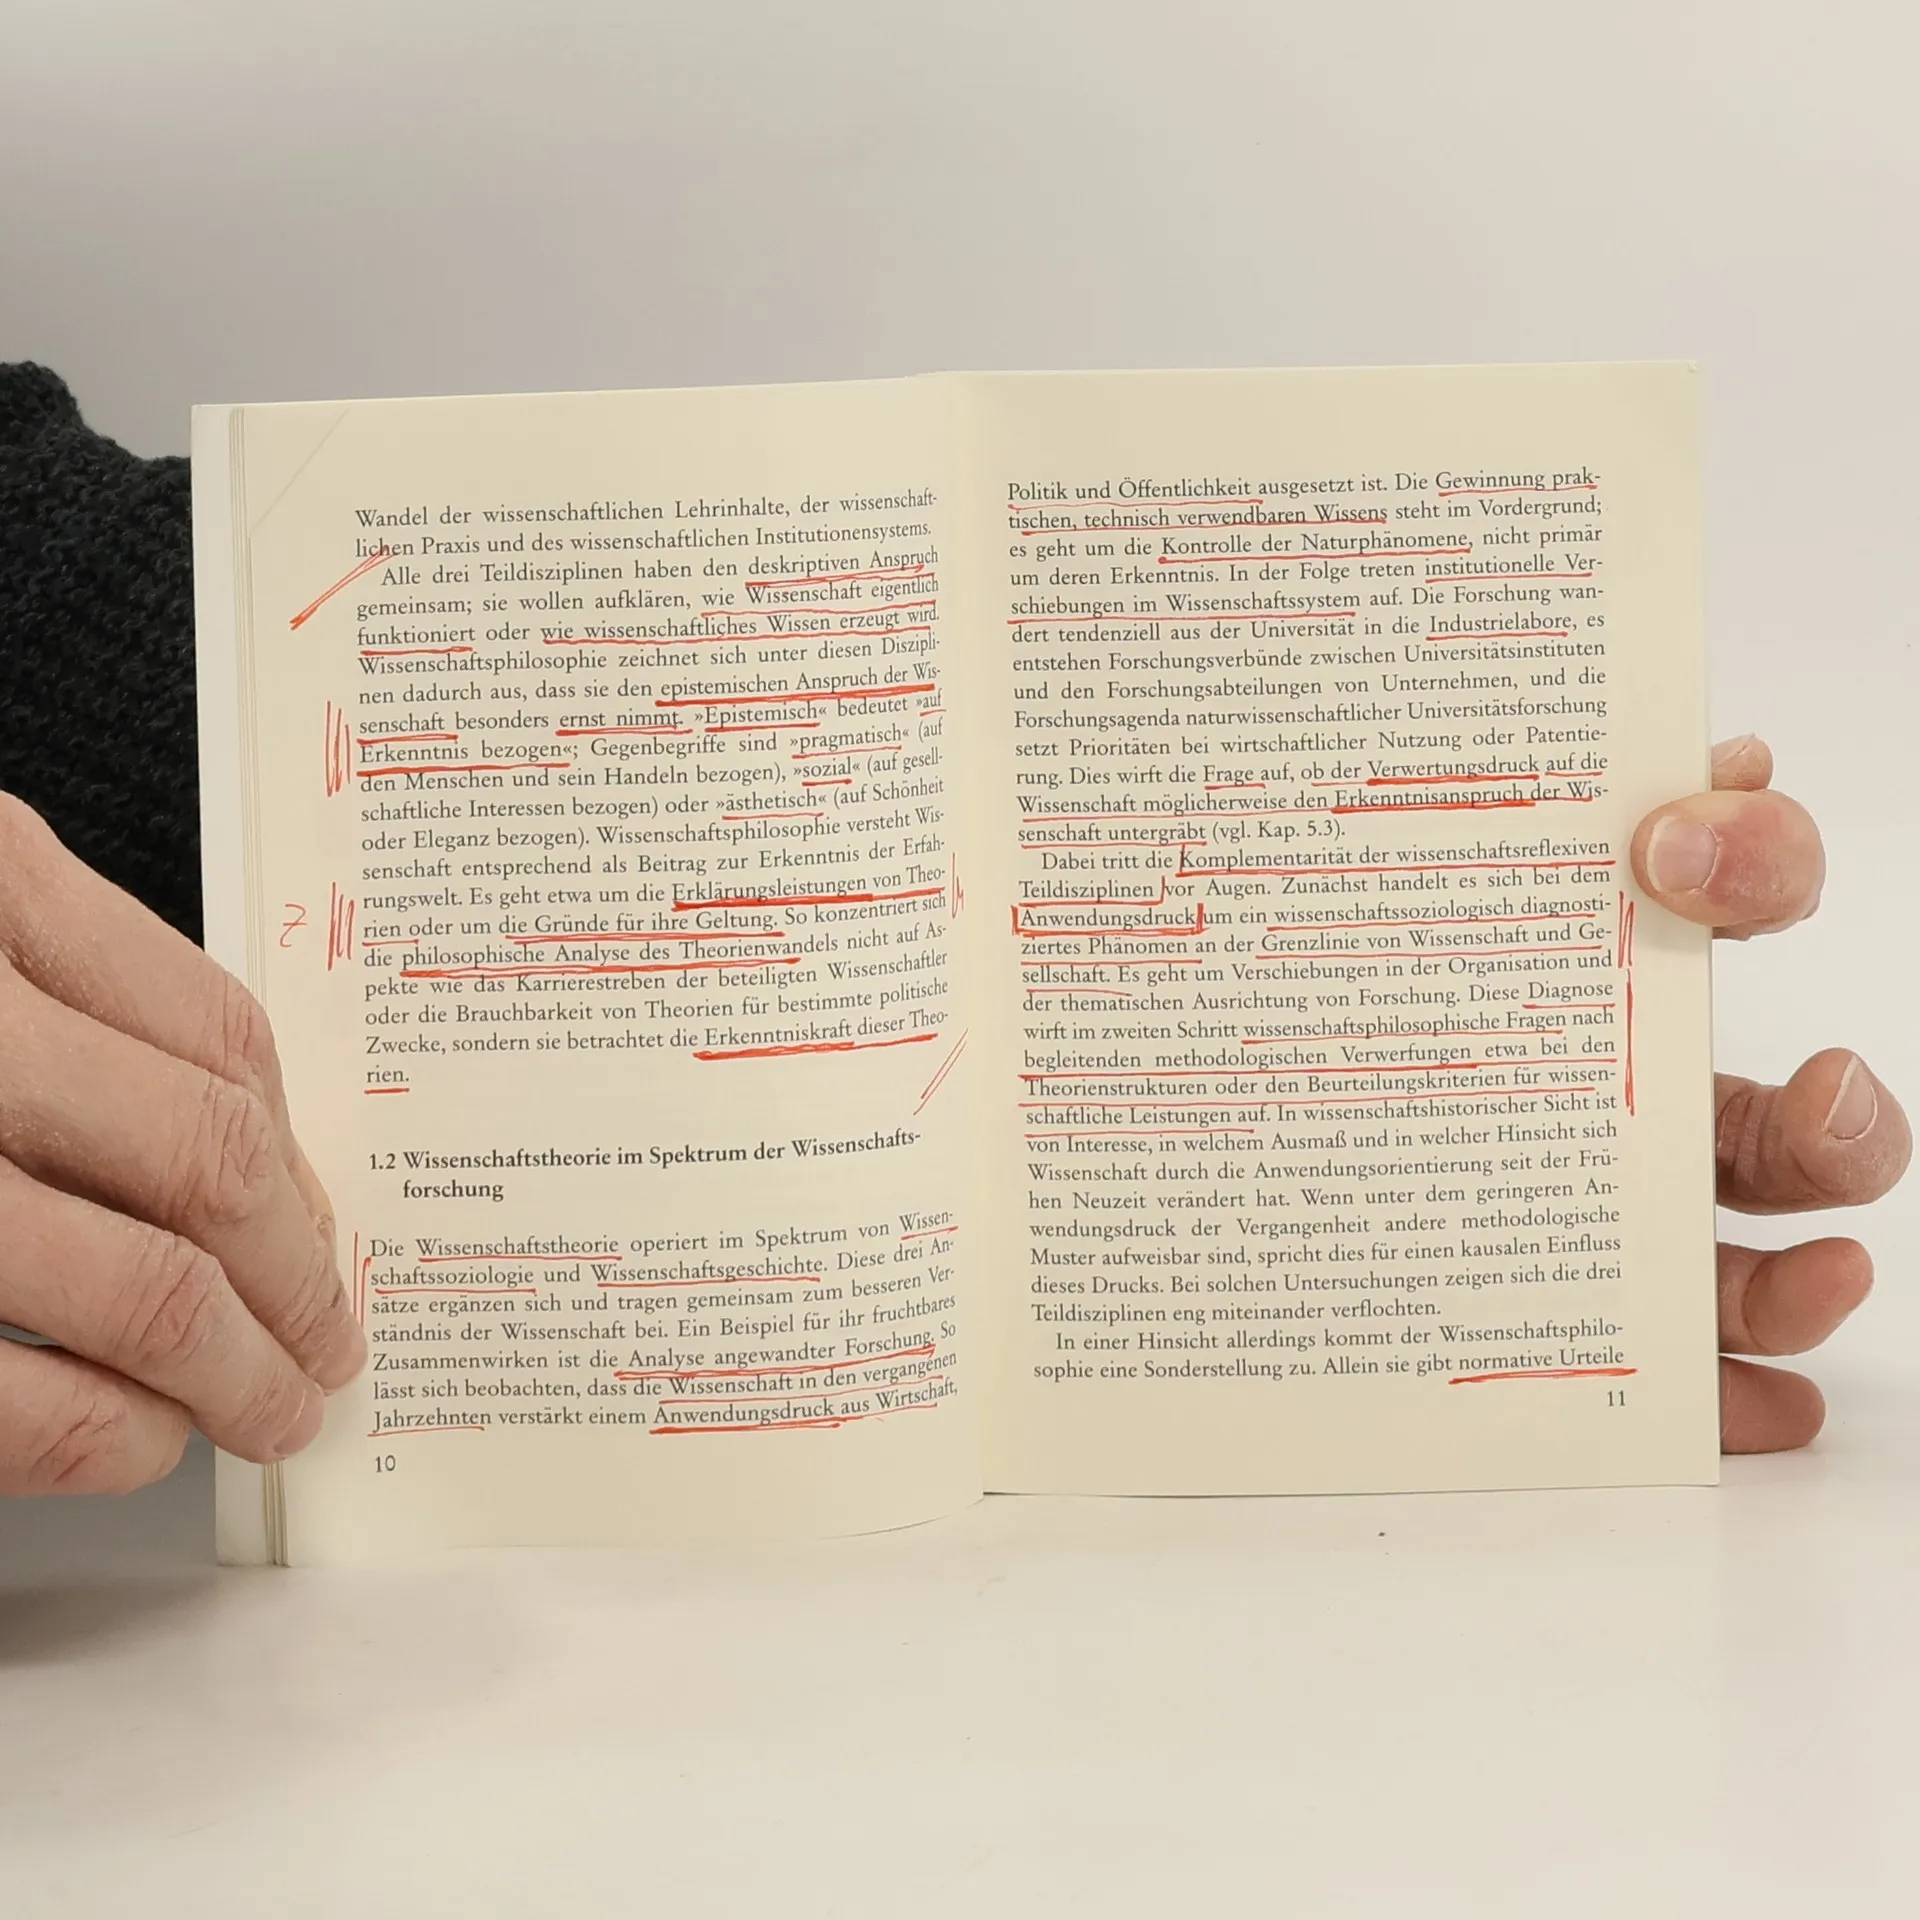 Wandel der wissenschaftlichen Lehrinhalte, der wissenschaft-
lichen Praxis und des wissenschaftlichen Institutionensystems.
Alle drei Teildisziplinen haben den deskriptiven Anspruch
gemeinsam; sie wollen aufklären, wie Wissenschaft eigentlich
funktioniert oder wie wissenschaftliches Wissen erzeugt wird.
Wissenschaftsphilosophie zeichnet sich unter diesen Diszipli-
nen dadurch aus, dass sie den epistemischen Anspruch der Wis-
senschaft besonders ernst nimmt. »Epistemisch« bedeutet »auf
Erkenntnis bezogen«; Gegenbegriffe sind »pragmatisch« (auf
den Menschen und sein Handeln bezogen), »sozial« (auf gesell-
schaftliche Interessen bezogen) oder »ästhetisch« (auf Schönheit
oder Eleganz bezogen). Wissenschaftsphilosophie versteht Wis-
senschaft entsprechend als Beitrag zur Erkenntnis der Erfah-
rungswelt. Es geht etwa um die Erklärungsleistungen von Theo-
rien oder um die Gründe für ihre Geltung. So konzentriert sich
die philosophische Analyse des Theorienwandels nicht auf As-
pekte wie das Karrierestreben der beteiligten Wissenschaftler
oder die Brauchbarkeit von Theorien für bestimmte politische
Zwecke, sondern sie betrachtet die Erkenntniskraft dieser Theo-
rien.
1.2 Wissenschaftstheorie im Spektrum der Wissenschafts-
forschung
Die Wissenschaftstheorie operiert im Spektrum von Wissen-
schaftssoziologie und Wissenschaftsgeschichte. Diese drei An-
sätze ergänzen sich und tragen gemeinsam zum besseren Ver-
ständnis der Wissenschaft bei. Ein Beispiel für ihr fruchtbares
Zusammenwirken ist die Analyse angewandter Forschung. So
lässt sich beobachten, dass die Wissenschaft in den vergangenen
Jahrzehnten verstärkt einem Anwendungsdruck aus Wirtschaft,
10
Politik und Öffentlichkeit ausgesetzt ist. Die Gewinnung prak-
tischen, technisch verwendbaren Wissens steht im Vordergrund;
es geht um die Kontrolle der Naturphänomene, nicht primär
um deren Erkenntnis. In der Folge treten institutionelle Ver-
schiebungen im Wissenschaftssystem auf. Die Forschung wan-
dert tendenziell aus der Universität in die Industrielabore, es
entstehen Forschungsverbünde zwischen Universitätsinstituten
und den Forschungsabteilungen von Unternehmen, und die
Forschungsagenda naturwissenschaftlicher Universitätsforschung
setzt Prioritäten bei wirtschaftlicher Nutzung oder Patentie-
rung. Dies wirft die Frage auf, ob der Verwertungsdruck auf die
Wissenschaft möglicherweise den Erkenntnisanspruch der Wis-
senschaft untergräbt (vgl. Kap. 5.3).
Dabei tritt die Komplementarität der wissenschaftsreflexiven
Teildisziplinen vor Augen. Zunächst handelt es sich bei dem
Anwendungsdruck um ein wissenschaftssoziologisch diagnosti-
ziertes Phänomen an der Grenzlinie von Wissenschaft und Ge-
sellschaft. Es geht um Verschiebungen in der Organisation und
der thematischen Ausrichtung von Forschung. Diese Diagnose
wirft im zweiten Schritt wissenschaftsphilosophische Fragen nach
begleitenden methodologischen Verwerfungen etwa bei den
Theorienstrukturen oder den Beurteilungskriterien für wissen-
schaftliche Leistungen auf. In wissenschaftshistorischer Sicht ist
von Interesse, in welchem Ausmaß und in welcher Hinsicht sich
Wissenschaft durch die Anwendungsorientierung seit der Frü-
hen Neuzeit verändert hat. Wenn unter dem geringeren An-
wendungsdruck der Vergangenheit andere methodologische
Muster aufweisbar sind, spricht dies für einen kausalen Einfluss
dieses Drucks. Bei solchen Untersuchungen zeigen sich die drei
Teildisziplinen eng miteinander verflochten.
In einer Hinsicht allerdings kommt der Wissenschaftsphilo-
sophie eine Sonderstellung zu. Allein sie gibt normative Urteile
11